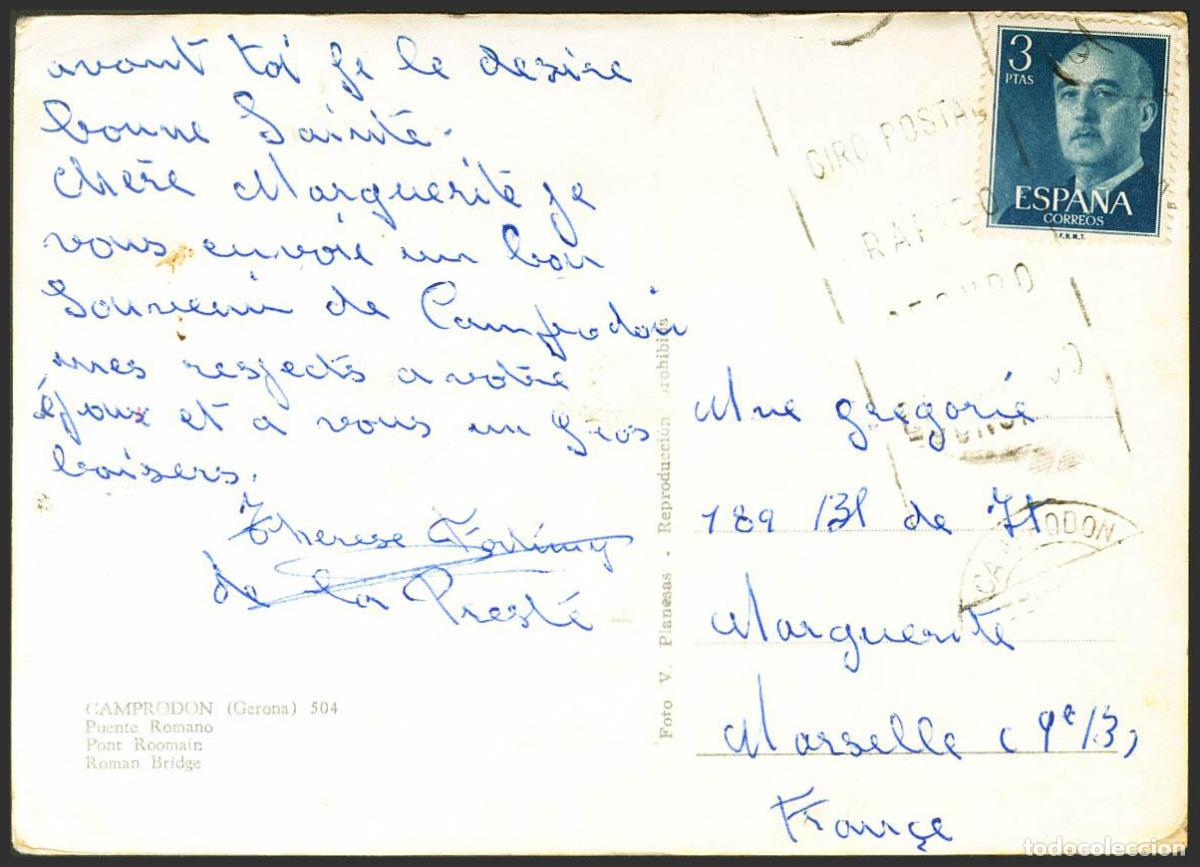 avant toi je le desire
bonne Sainte.
Chère Marguerite je
vous envoie un bon
Souvenir de Camprodon
mes respects a votre
époux et a vous un Gros
baisers.
Therese
de la Preste
CAMPRODON (Gerona) 504
Puente Romano
Pont Roomain
Roman Bridge
Foto V. Planesas - Reproducción prohibida
3
PTAS
ESPAÑA
CORREOS
F.N.M.T.
GIRO POSTAL
RAPIDO
Mne gregorie
189 Bl de St
Marguerite
Marselle (9e B)
Françe
CAMPRODON
todocoleccion